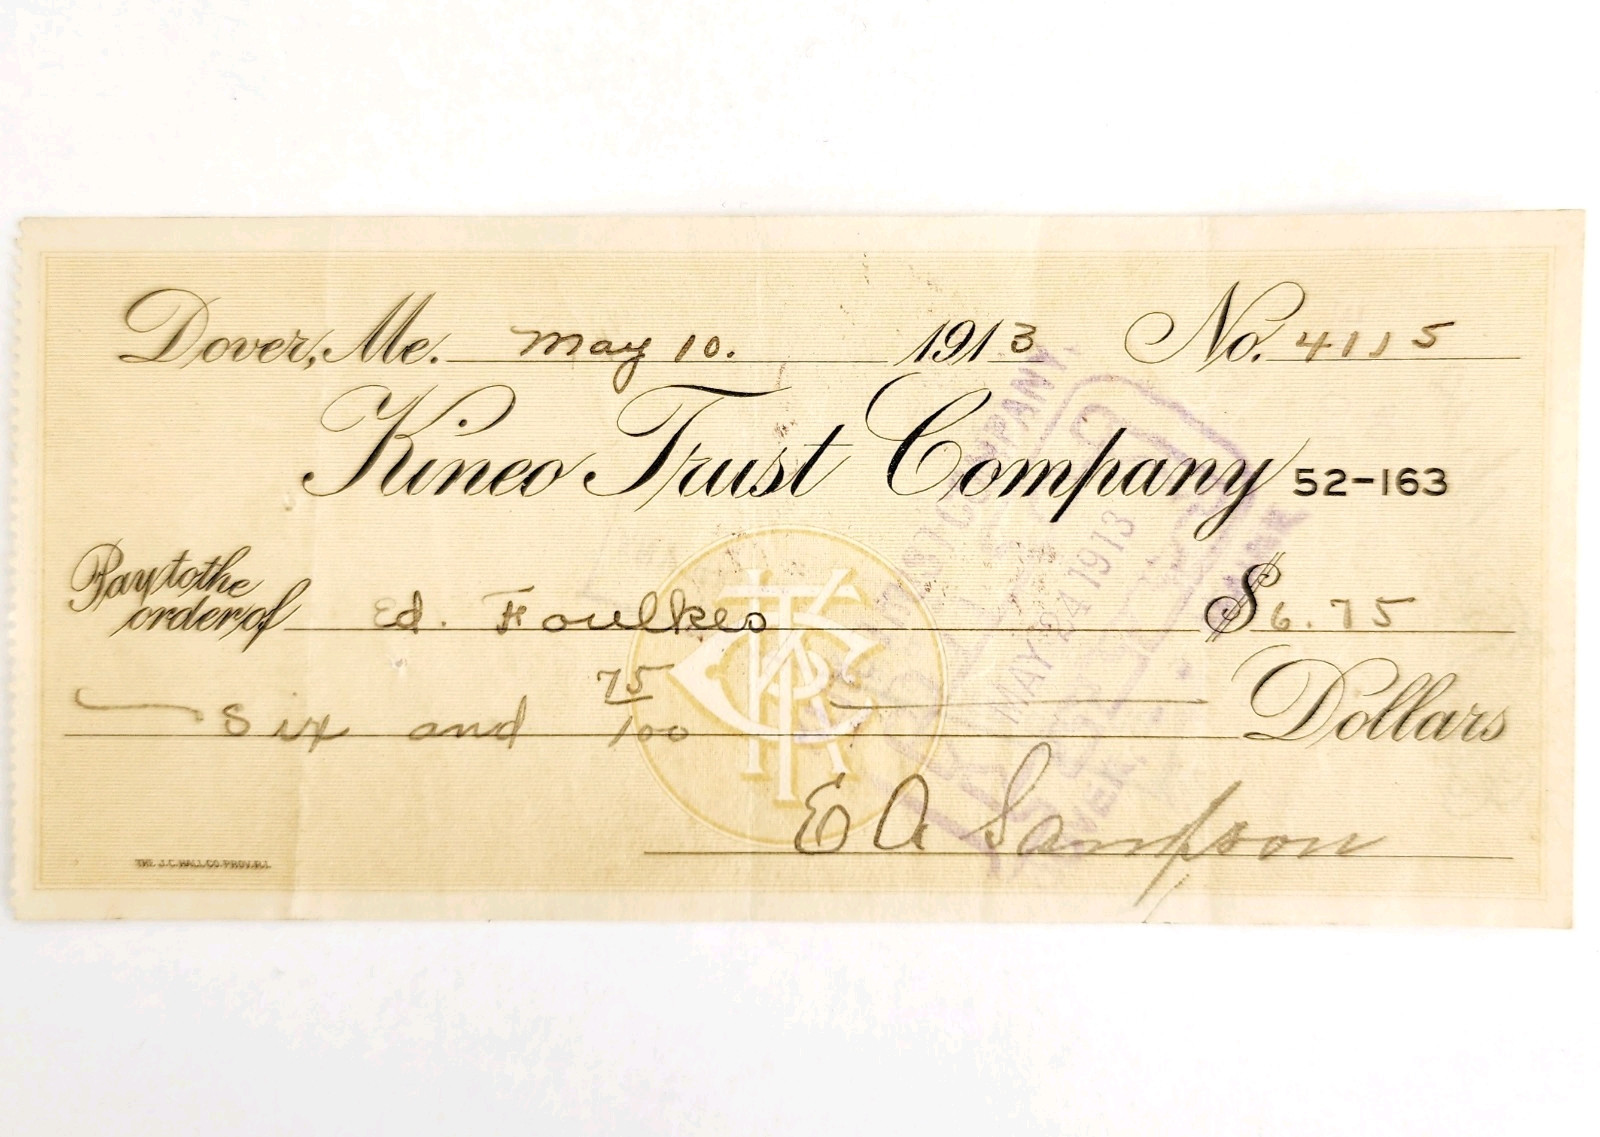 Dover, Me. May 10. 1913 No. 4115
Kineo Trust Company 52-163
Pay to the order of Ed. Foulkes $6.75
Six and 75/100 Dollars
E A Sampson
THE J.C. HALL CO. PROV. R.I.
KTC
COMPANY,
MAY 24 1913